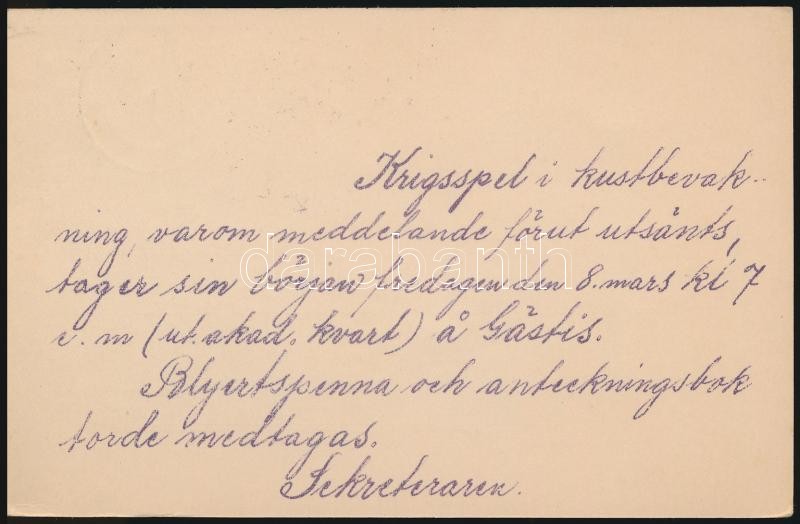 Krigsspel i kustbevak-
ning, varom meddelande förut utsänts,
tager sin början fredagen den 8. mars kl 7
e. m (ut. akad. kvart) å Gästis.
Blyertspenna och anteckningsbok
torde medtagas.
Sekreteraren.
darabanth